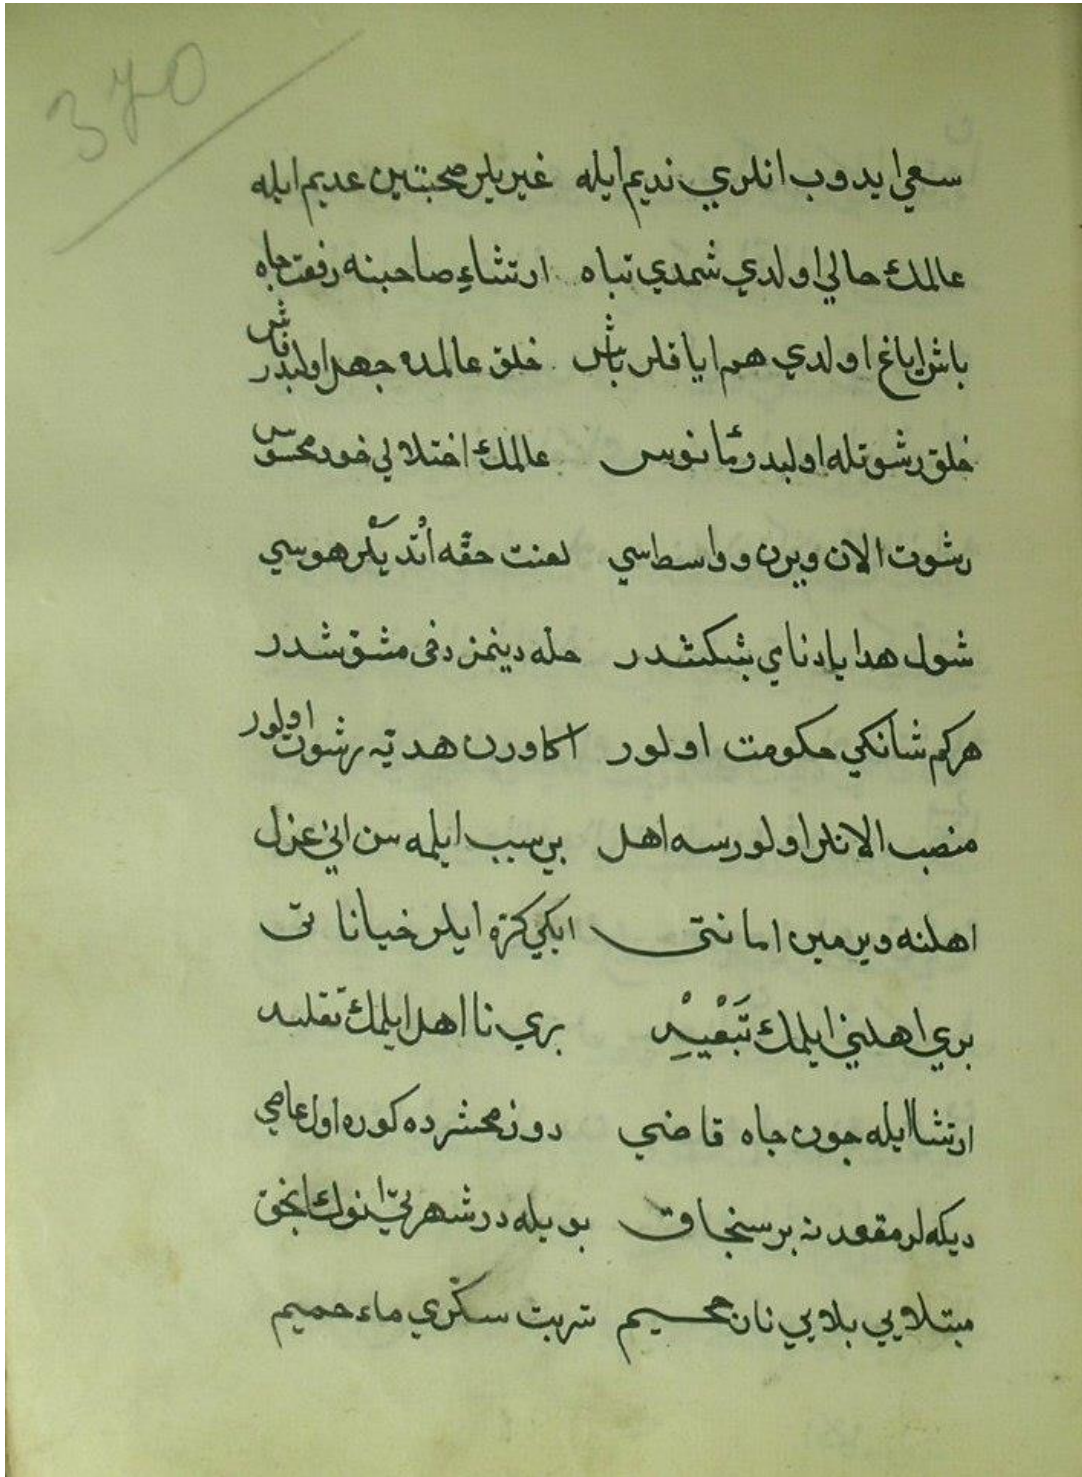 370
سعي ايدوب انلري نديم ايله غيريلر صحبتين عديم ايله
عالمك حالي اولدي شمدي تباه ارتشاءِ صاحبنه رفعت جاه
باش اياغ اولدي هم اياقلر باش خلق عالمده جهل اولبدر فاش
خلق رشوتله اولبدر مأنوس عالمك اختلالي خود محسوس
رشوت الان ويرن وواسطاسي لعنت حقّه اُندي بْكلر هوسي
شول هدايا دناي بشكشدر حله دينمز دخى مشقشدر
هركم شانكي حكومت اولور اكا ورن هديّه رشوت اولور
منصب الانلر اولورسه اهل بي سبب ايلمه سن اني عزل
اهلنه ويرمين امانتى ايكي كرّه ايلر خياناتى
بري اهلني ايلمك تَبْعيْدِ بري نا اهل ايلمك تقليد
ارتشا ايله جون جاه قاضي دوز محشرده كوره اول عاصي
ديكه لر مقعدنه بر سنجاق بويله در شهرتي انوك انجق
مبتلايي بلايي نان جحيم شربت سكري ماء حميم